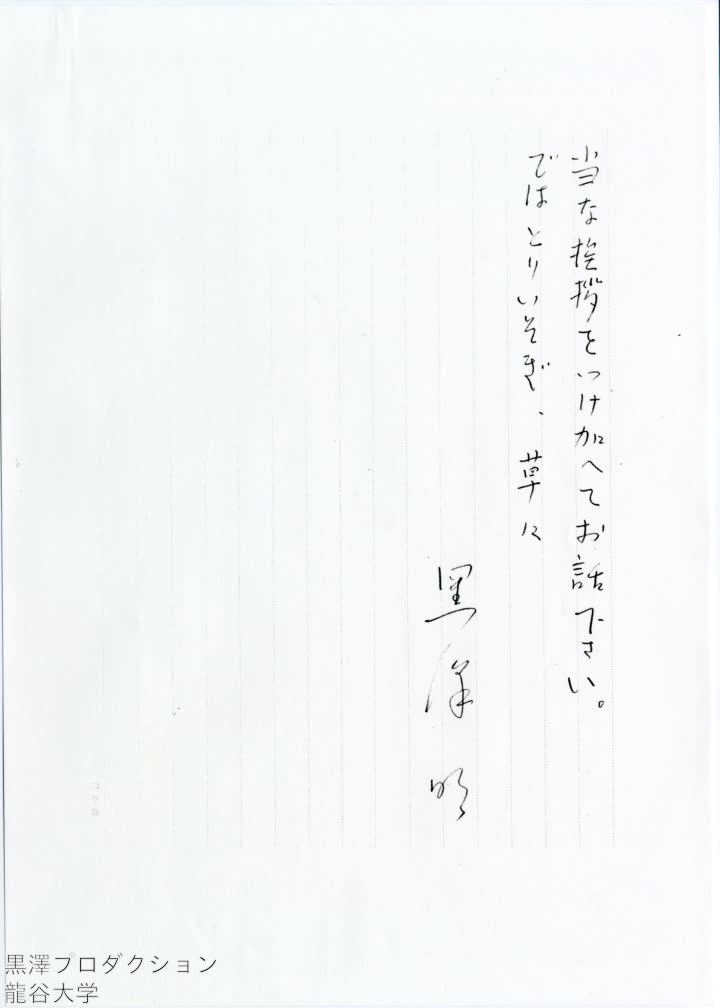 当な挨拶をつけ加へてお話下さい。
ではとりいそぎ、草々
黒澤明
黒澤プロダクション
龍谷大学